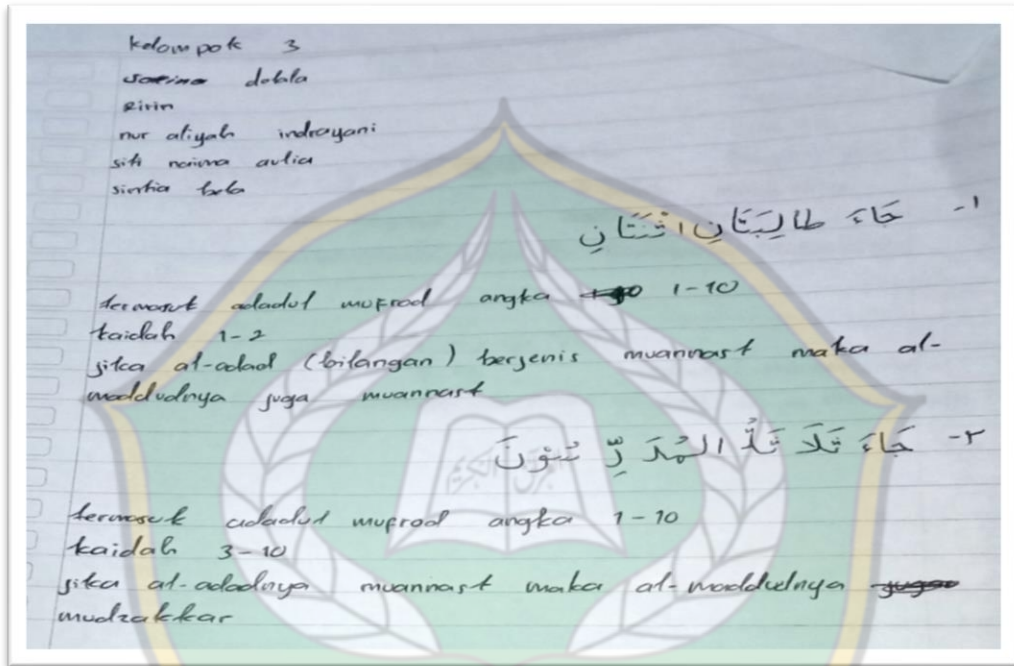 kelompok 3
dobla
ririn
nur aliyah indrayani
siti naima aulia
sintia bela
١- جَاءَ طَالِبَتَانِ اثْنَتَانِ
termasuk adadul mufrod angka 1-10
kaidah 1-2
jika al-adad (bilangan) berjenis muannast maka al-
maddudnya juga muannast
٢- جَاءَ ثَلَا ثَةُ المُدَ رِّ سُوْنَ
termasuk adadul mufrod angka 1-10
kaidah 3-10
jika al-adadnya muannast maka al-maddudnya
mudzakkar